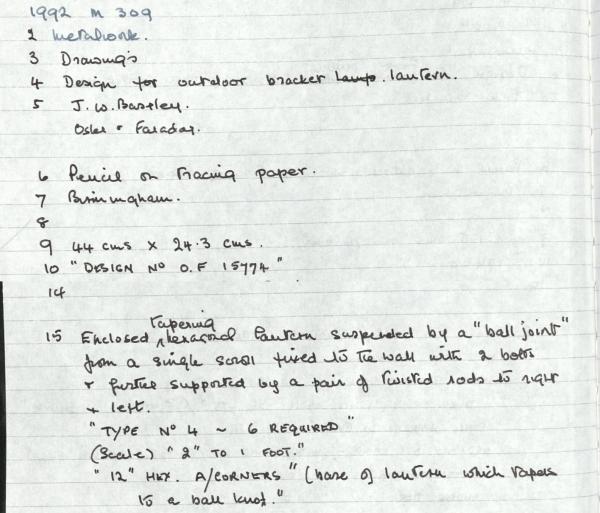 1992 M 309
2 Metalwork.
3 Drawings
4 Design for outdoor bracket Lamp. lantern.
5 J. W. Bastley.
Osler & Faraday.
6 Pencil on Tracing paper.
7 Birmingham.
8
9 44 cms x 24.3 cms.
10 "DESIGN No O.F 15774"
14
15 Enclosed tapering hexagonal lantern suspended by a "ball joint"
from a single scroll fixed to the wall with 2 bolts
& further supported by a pair of twisted rods to right
& left.
"TYPE No 4 ~ 6 REQUIRED"
(Scale) "2" TO 1 FOOT."
"12" HEX. A/CORNERS" (base of lantern which tapers
to a ball knot."